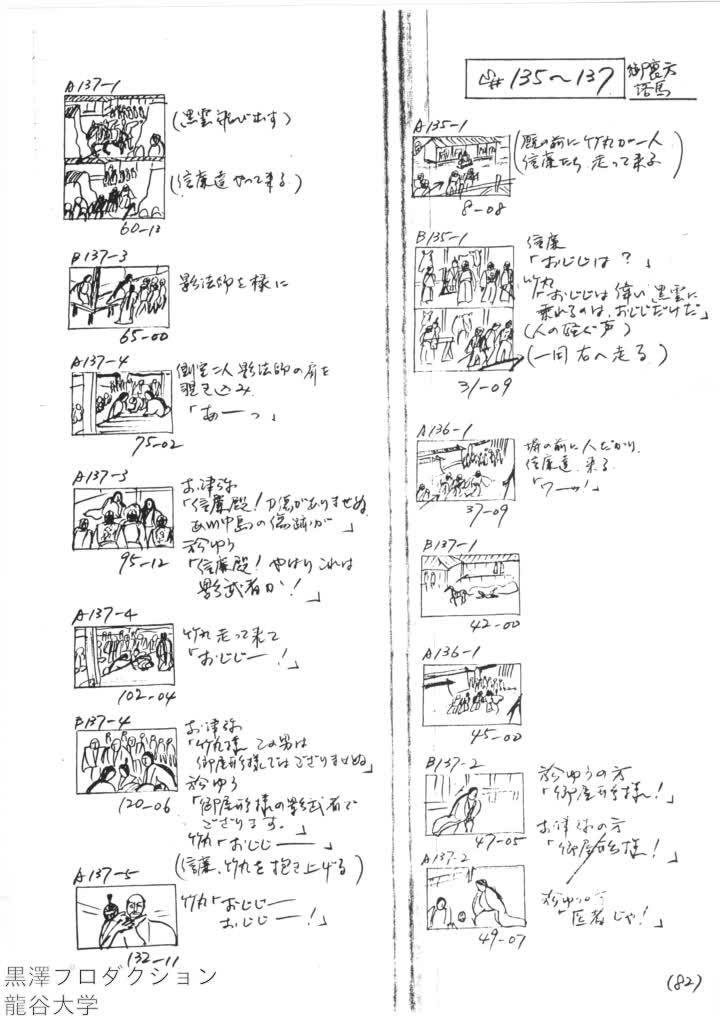 S# 135〜137
御裏方
塔馬
A135-1
厩の前に竹丸が一人
信廉たち 走って来る
8-08
B135-1
信廉
「おじじは？」
竹丸
「おじじは偉い 黒雲に
乗れるのは、おじじだけだ」
(人の騒ぐ声)
(一同右へ走る)
31-09
A136-1
塀の前に人だかり
信廉達 来る
「ワーッ！」
37-09
B137-1
42-00
A136-1
45-00
B137-2
於ゆうの方
「御屋形様！」
47-05
お津弥の方
「御屋形様！」
A137-2
於ゆうの方
「医者じゃ！」
49-07
A137-1
(黒雲飛び出す)
(信廉達やって来る)
60-13
B137-3
影法師を様に
65-00
A137-4
側室二人 影法師の肩を
「あーっ」
75-02
A137-3
お津弥
「信廉殿！刀傷がありませぬ
川中島の傷跡が」
於ゆう
「信廉殿！やはりこれは
影武者か！」
95-12
A137-4
竹丸走って来て
「おじじー！」
102-04
B137-4
お津弥
「竹丸様 この男は
御屋形様ではございませぬ」
於ゆう
「御屋形様の影武者で
ござります。」
竹丸「おじじー」
(信廉、竹丸を抱き上げる)
120-06
A137-5
竹丸「おじじー
おじじー！」
132-11
(82)
黒澤プロダクション
龍谷大学